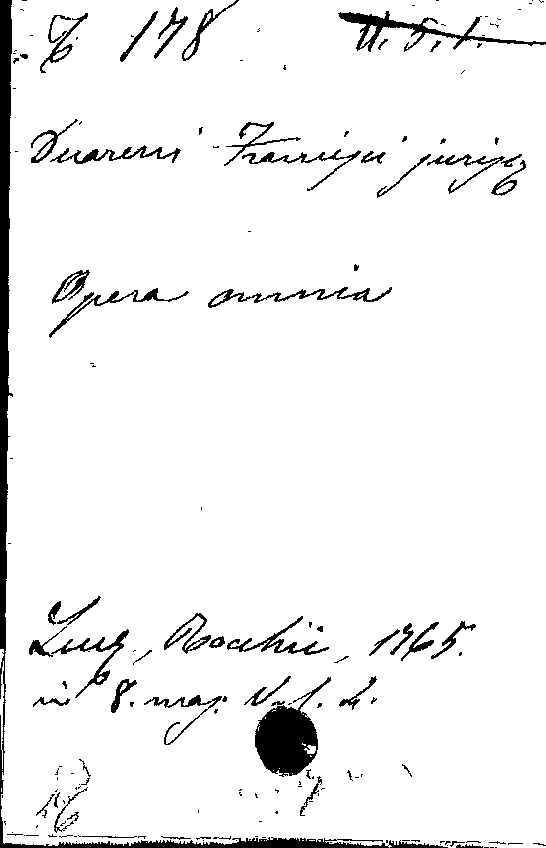 178 II. 5. 1.
Duareni Francisci jurisc
Opera omnia
Lucq, Rocchii, 1765.
in 8. maj. Vol. 2.